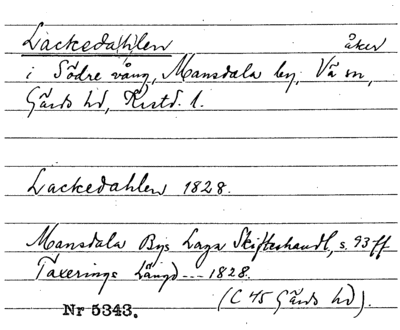 Lackeda(h)len åker
i Södre vång, Mansdala by, Vä sn,
Gärds hd, Krstd. l.
Lackedahlen 1828.
Mansdala Bys Laga Skifteshandl, s. 93 ff
Taxerings Längd --- 1828.
(C 45 Gärds hd).
Nr 5343.